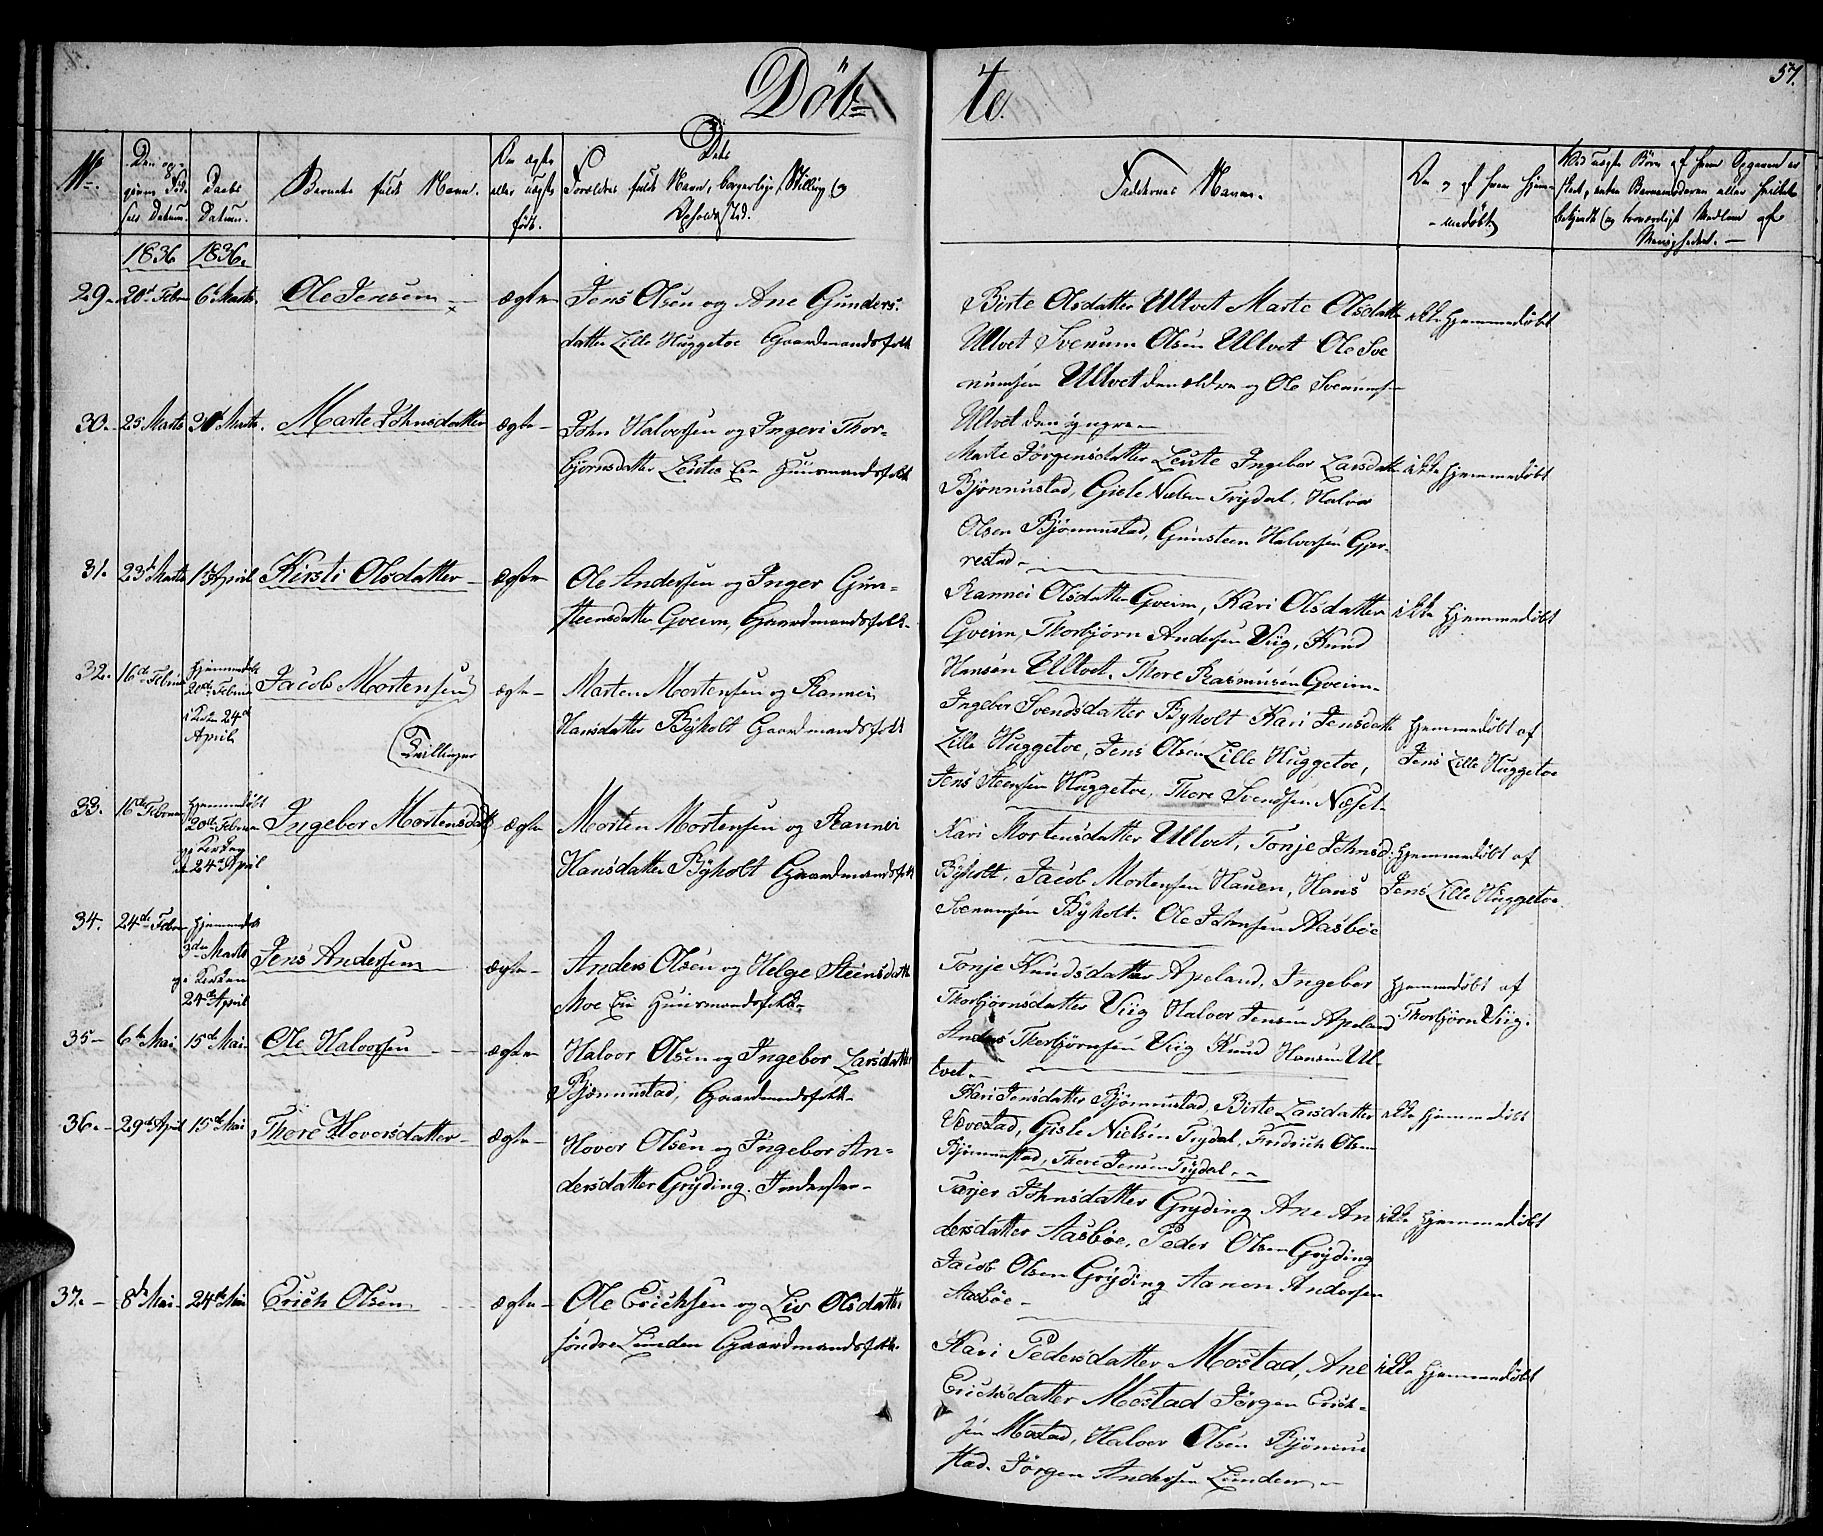 Döbte.
57.
No.
Den opgivne Fødsels Datum.
Daabs Datum.
Barnets fulde Navn.
Om ægte eller uægte født.
Dets Forældres fulde Navn, borgerlige Stilling og Opholdsted.
Faddernes Navne.
Om og af hvem hjemmedøbt
Ved uægte Børn af hvem Opgaven er skeet, enten Barnemoderen eller hvilket bekjendt og troværdigt Medlem af Menigheden.
1836 1836.
29. 20de Febr 6te Marts. Ole Jensen ægte Jens Olsen og Ane Gunders-
datter Lille Huggetoe Gaardmandsfolk
Birte Olsdatter Ultvet Marte Olsdatter
Ultvet Svenum Olsen Ultvet Ole Sve
numsen Ultvet den ældre og Ole Svenumsen
Ultvet den yngre
ikke hjemmedøbt
30. 25 Marts Marts. Marte Johnsdatter ægte John Halvorsen og Ingeri Thor-
bjørnsdatter Lente Eie Huusmandsfolk
Marte Jørgensdatter Leute Ingebor Larsdatter
Bjönnustad, Gisle Nielsen Trydal, Halvor
Olsen Bjönnustad, Gunsteen Halvorsen Gjer-
restad
ikke hjemmedøbt
31. 23de Marts 1ste April Kirsti Olsdatter ægte Ole Andersen og Inger Gun-
steensdatter Gveim, Gaardmandsfolk.
Rannei Olsdatter Gveim, Kari Olsdatter
Gveim, Thorbjørn Andersen Viig, Knud
Hansen Ultvet. Thore Rasmusen Gveim
ikke hjemmedøbt
32. 16de Febru Hjemmedøbt
20de Februar
i Kirken 24de
April
Jacob Mortensen
Tvillinger
ægte Morten Mortensen og Rannei
Hansdatter Byholt Gaardmandsfolk
Ingebor Svendsdatter Byholt Kari Jensdatter
Lille Huggetoe, Jens Olsen Lille Huggetoe,
Jens Steensen Huggetoe, Thore Svendsen Næset
Hjemmedøbt af
Jens Lille Huggetoe
33. 16de Februar Hjemmedøbt
20de Februar
og i Kirken
d 24de April
Ingebor Mortensdatt ægte Morten Mortensen og Rannei
Hansdatter Byholt Gaardmandsfolk
Kari Mortensdatter Ultvet, Tonje Johnsd.
Byholt, Jacob Mortensen Hauen, Hans
Svenumsen Byholt. Ole Johnsen Aasbøe
Hjemmedøbt af
Jens Lille Huggetoe.
34. 24de Febr Hjemmedøbt
3die Marts
og i Kirken
24de April
Jens Andersen ægte Anders Olsen og Helge Steensdatter
Moe Eie Huusmandsfolk
Tonje Knudsdatter Apeland, Ingebor
Thorbjørnsdatter Viig Halvor Jensen Apeland
Anders Thorbjørnsen Viig Knud Hansen Ul-
tvet.
Hjemmedøbt af
Thorbjørn Viig.
35 6te Mai 15de Mai Ole Halvorsen ægte Halvor Olsen og Ingebor Larsdatter
Bjønnustad, Gaardmandsfolk
Kari Jensdatter Bjönnustad, Birte Larsdatter
Vevestad, Gisle Nielsen Trydal, Fredrich Olsen
Bjönnustad, Thore Jensen Trydal.
ikke hjemmedøbt
36. 29de April 15de Mai Thore Hoversdatter ægte Hover Olsen og Ingebor An-
dersdatter Gryding. Inderster
Tarjer Johnsdatter Gryding Ane An
dersdatter Aasbøe, Peder Olsen Gryding
Jacob Olsen Gryding Aanon Andersen
Aasbøe
ikke hjemmedøbt
37. 8de Mai 24de Mai Erich Olsen ægte Ole Erichsen og Liv Olsdatter
søndre Lunden Gaardmandsfolk.
Kari Pedersdatter Mostad, Ane
Erichsdatter Mostad Jørgen Erich-
sen Mostad, Halvor Olsen Bjönnu
stad. Jørgen Andersen Lunden
ikke hjemmedøbt